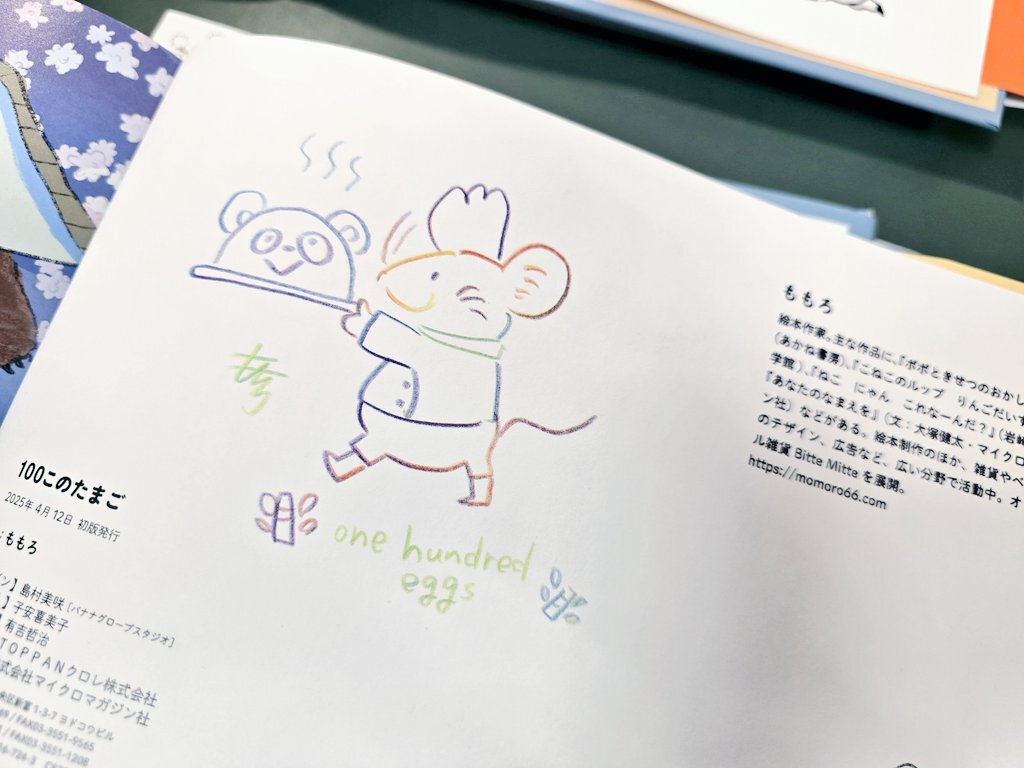 one hundred
eggs
100このたまご
2025年4月12日 初版発行
ももろ
島村美咲［バナナグローブスタジオ］
子安喜美子
有吉哲治
TOPPANクロレ株式会社
式会社マイクロマガジン社
1-3-7ヨドコウビル
/FAX03-3551-9565
/FAX03-3551-1208
ももろ
絵本作家。主な作品に、『ポポときせつのおかし
（あかね書房）、『こねこのルップ りんごだいす
学館）、『ねこ にゃん これなーんだ？』（岩崎
『あなたのなまえを』（文：大塚健太・マイクロ
ン社）などがある。絵本制作のほか、雑貨やペ
のデザイン、広告など、広い分野で活動中。オ
ル雑貨 Bitte Mitte を展開。
https://momoro66.com